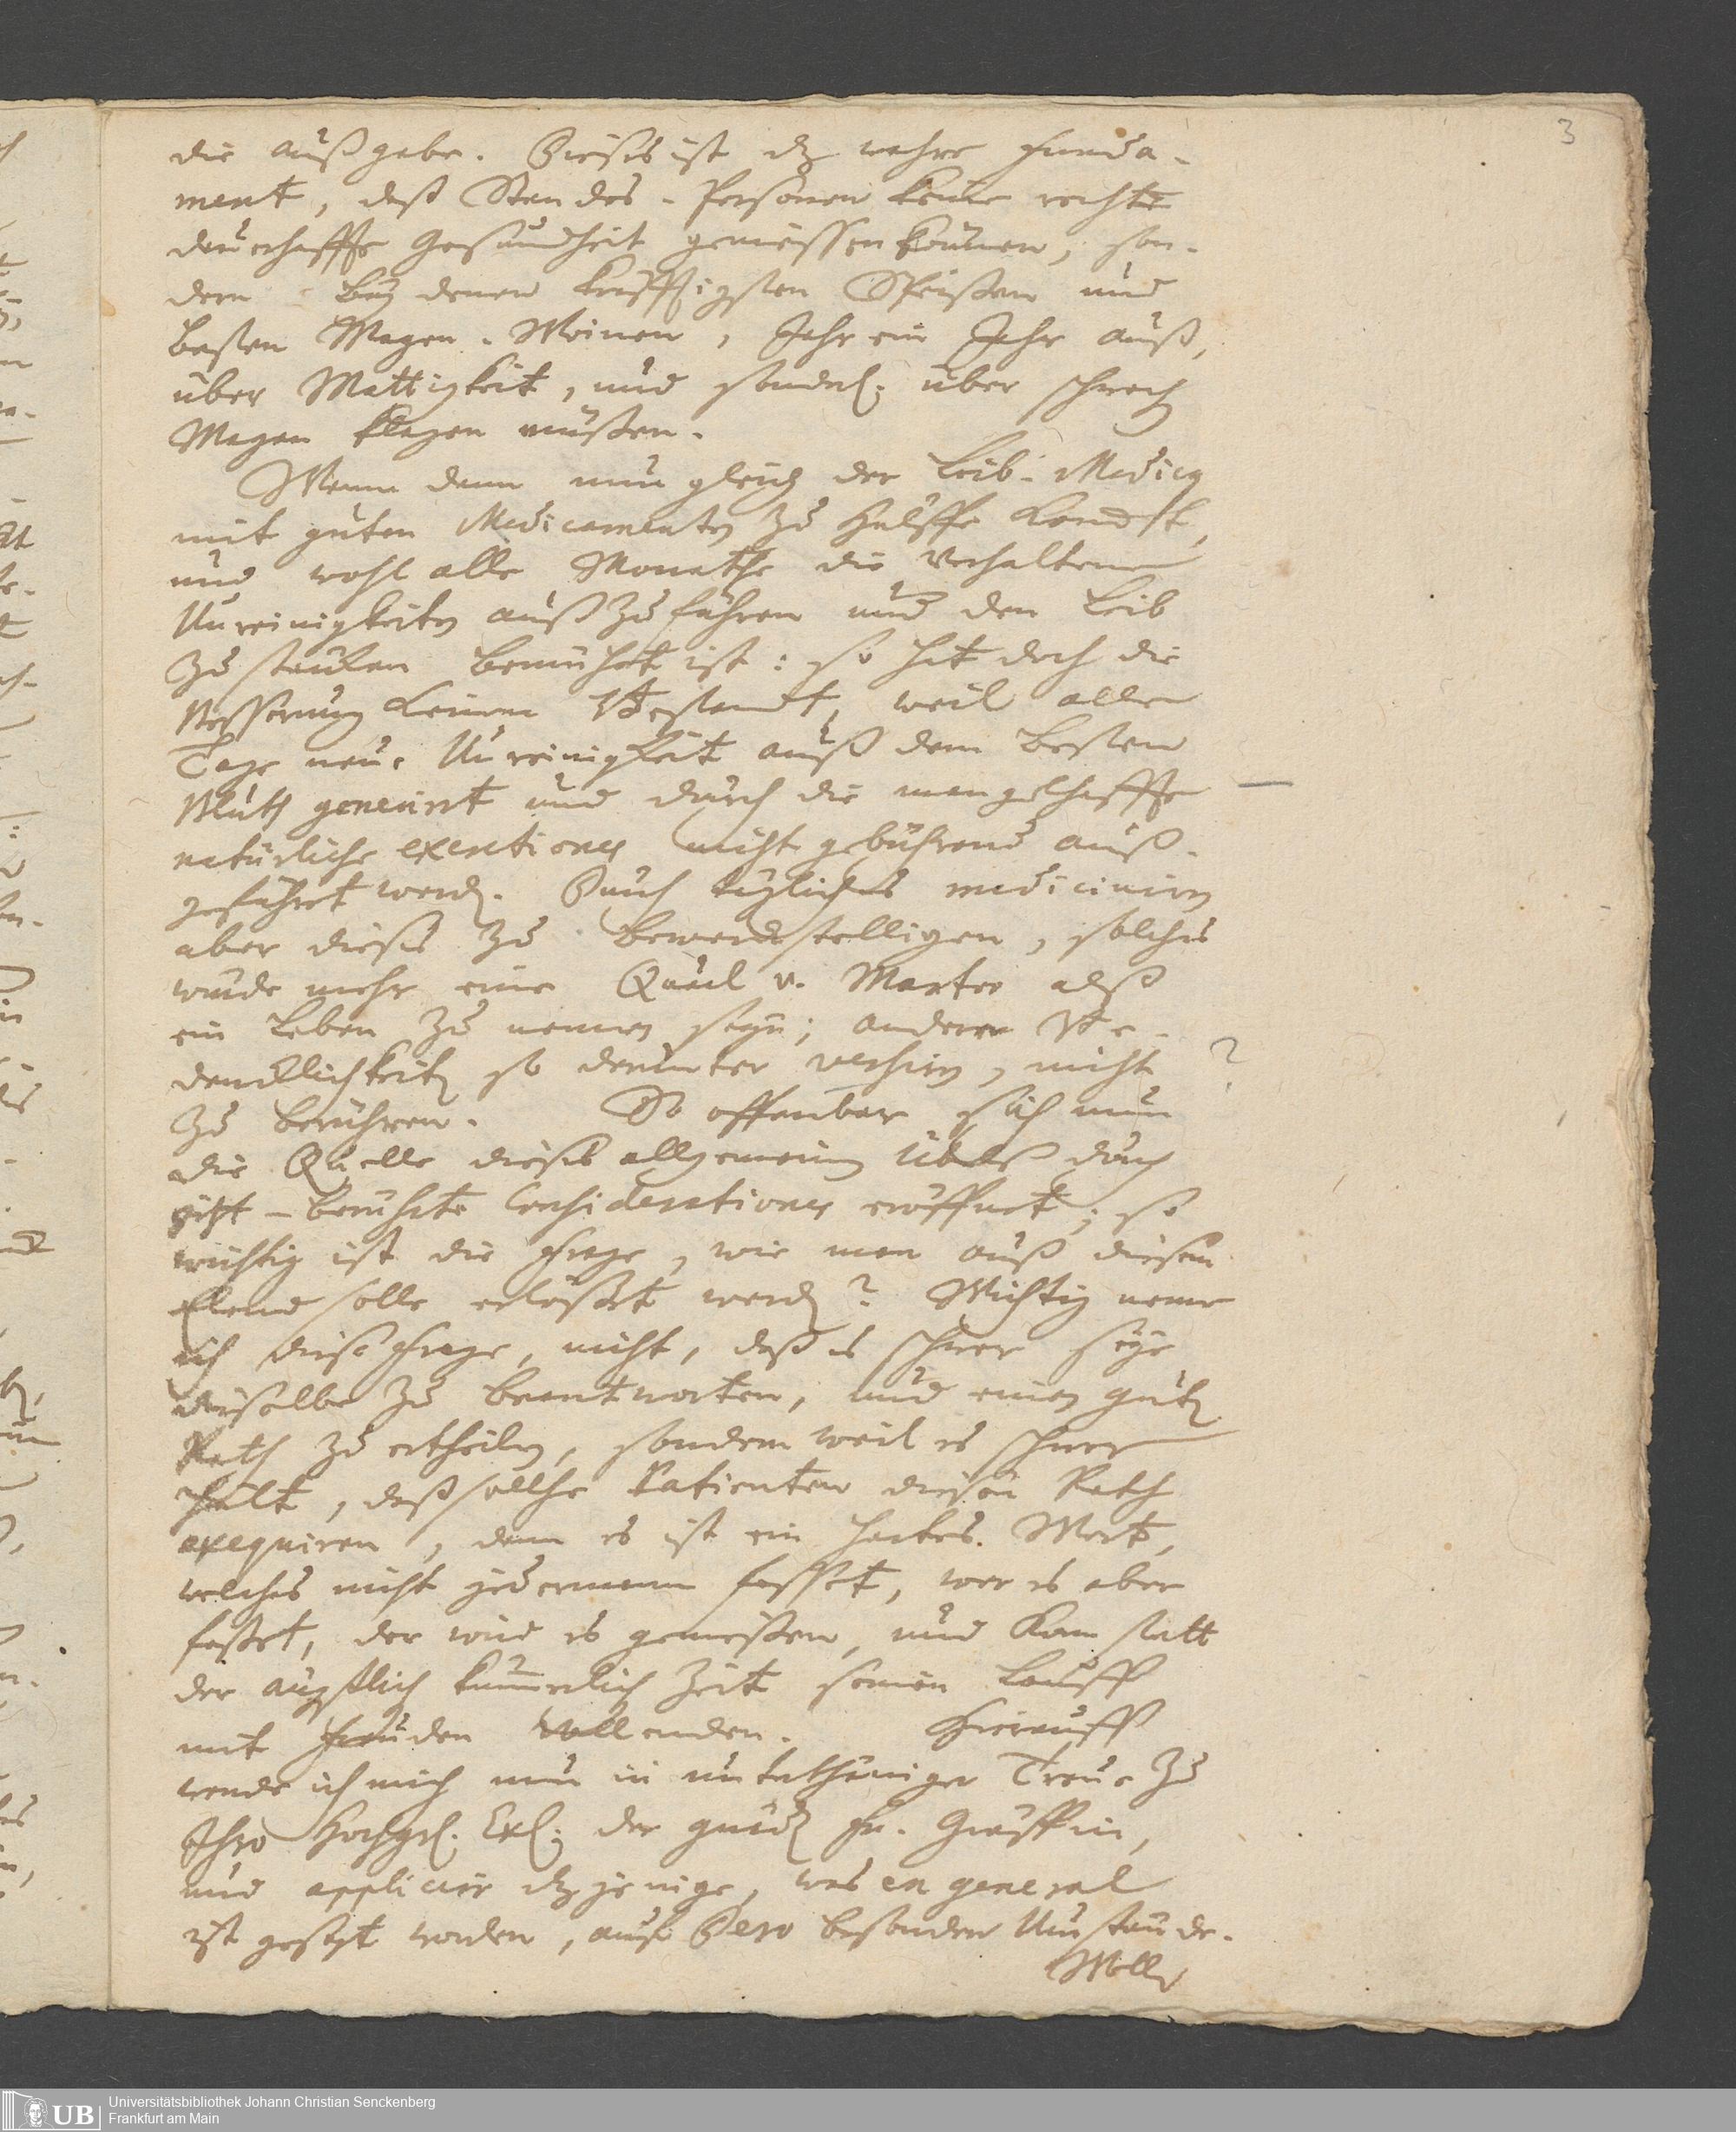 3
die außgabe. Dieses ist dz wahre Funda-
ment, daß Standes-Personen keine rechte
dauerhaffte Gesundheit geniessen können, son-
dern bey denen kräfftigsten Speißen und
besten Magen-Weinen, Jahr ein Jahr auß,
über Mattigkeit, und sonderl: über schwach
Magen klagen müßen.
Wenn dann nun gleich der Leib-Medicq
mit guten Medicamenten zu Hülffe kombt,
und wohl alle Monathe die verhaltene
Unreinigkeiten außzuführen und den Leib
zu stärken bemühet ist: so hat doch die
Besserung keinen Bestandt, weil alle
Tage neue Unreinigkeit auß dem besten
Bluth generirt und durch die mangelhaffte
natürliche excretiones nicht gebührend auß-
geführet werden. Durch tägliches mediciniren
aber dieses zu bewerckstelligen, solches
würde mehr eine Quaal v. Marter alß
ein Leben zu nennen seyn; anderer Be-
dencklichkeiten so darunter versiren, nicht ?
zu berühren. So offenbar sich nun
die Quelle dieses allgemeinen Übels durch
jetzt-berührte Considerationes eröffnet; so
wichtig ist die Frage, wie man auß diesem
Elend solle erlößet werden? Wichtig nenne
ich diese Frage, nicht, daß es schwer seye
dieselbe zu beantworten, und einen guten
Rath zu ertheilen, sondern weil es schwer
hält, daß solche Patienten diesen Rath
exequiren, denn es ist ein hartes Wort,
welches nicht jedermann fasset, wer es aber
fasset, der wird es geniessen, und kan statt
der ängstlich kümmerlich Zeit seinen Lauff
mit Freuden vollenden. Hierauff
wende ich mich nun in unterthäniger Treue zu
Ihro Hochgrl. Exl: der gnäd Fr. Gräffin,
und applicir dzjenige, was en general
ist gesetzt worden, auf Dero besondere Umstände.
Wolle
Universitätsbibliothek Johann Christian Senckenberg
Frankfurt am Main
UB